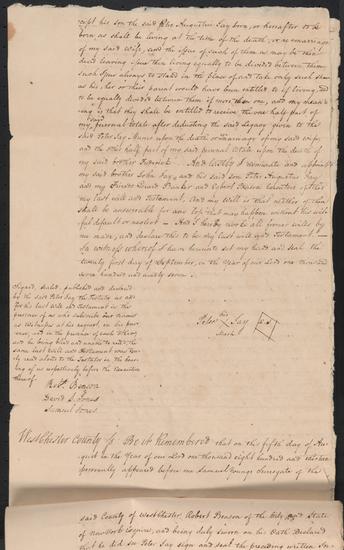 cept his son the said Peter Augustus Jay born, or hereafter to be
born as shall be living at the time of the death, or remarriage
of my said wife, and the Issue of such of them as may be then
dead leaving Issue then living equally to be divided between them
such Issue always to stand in the place of and take only such share
as his, her or their parent would have been entitled to if living, and
to be equally divided between them if more than one, and my mean-
ing is that they shall be entitled to receive the one half part of
my personal estate after deducting the said legacy given to the
said Peter Jay Munro upon the death or remarriage of my said wife
and the other half part of my said personal estate upon the death of
my said brother Frederick. And lastly I nominate and appoint
my said brother John Jay, and his said Son Peter Augustus Jay
and my Friends and Robert Benson Executors of this
my last will and testament. And my Will is that neither of them
shall be answerable for any loss that may happen without his wil-
ful default or neglect. And I hereby revoke all former wills by
me made, and declare this to be my last will and Testament.
In witness whereof I have hereunto set my hand and seal the
twenty first day of September, in the Year of our Lord one thousand
seven hundred and ninety seven.
Signed, sealed, published and declared
by the said Peter Jay the Testator, as and
for his last will and testament in the
presence of us who subscribe our names
as witnesses at his request, in his pre-
sence, and in the presence of each other,
and he being blind and unable to read, the
same last will and testament was truly
read aloud to the Testator in the hear-
ing of us respectively before the Execution
thereof.
Peter his Jay L.S.
Mark
Robt. Benson
David S. Jones
Samuel Jones
West Chester County ss Be it Remembered that on this fifth day of Au-
gust in the Year of our Lord one thousand eight hundred and thirteen
personally appeared before me Samuel Youngs Surrogate of the
said County of Westchester, Robert Benson of the City and State
of New York Esquire, and being duly sworn on his Oath Declared
that he did see Peter Jay sign and seal the preceding written In-